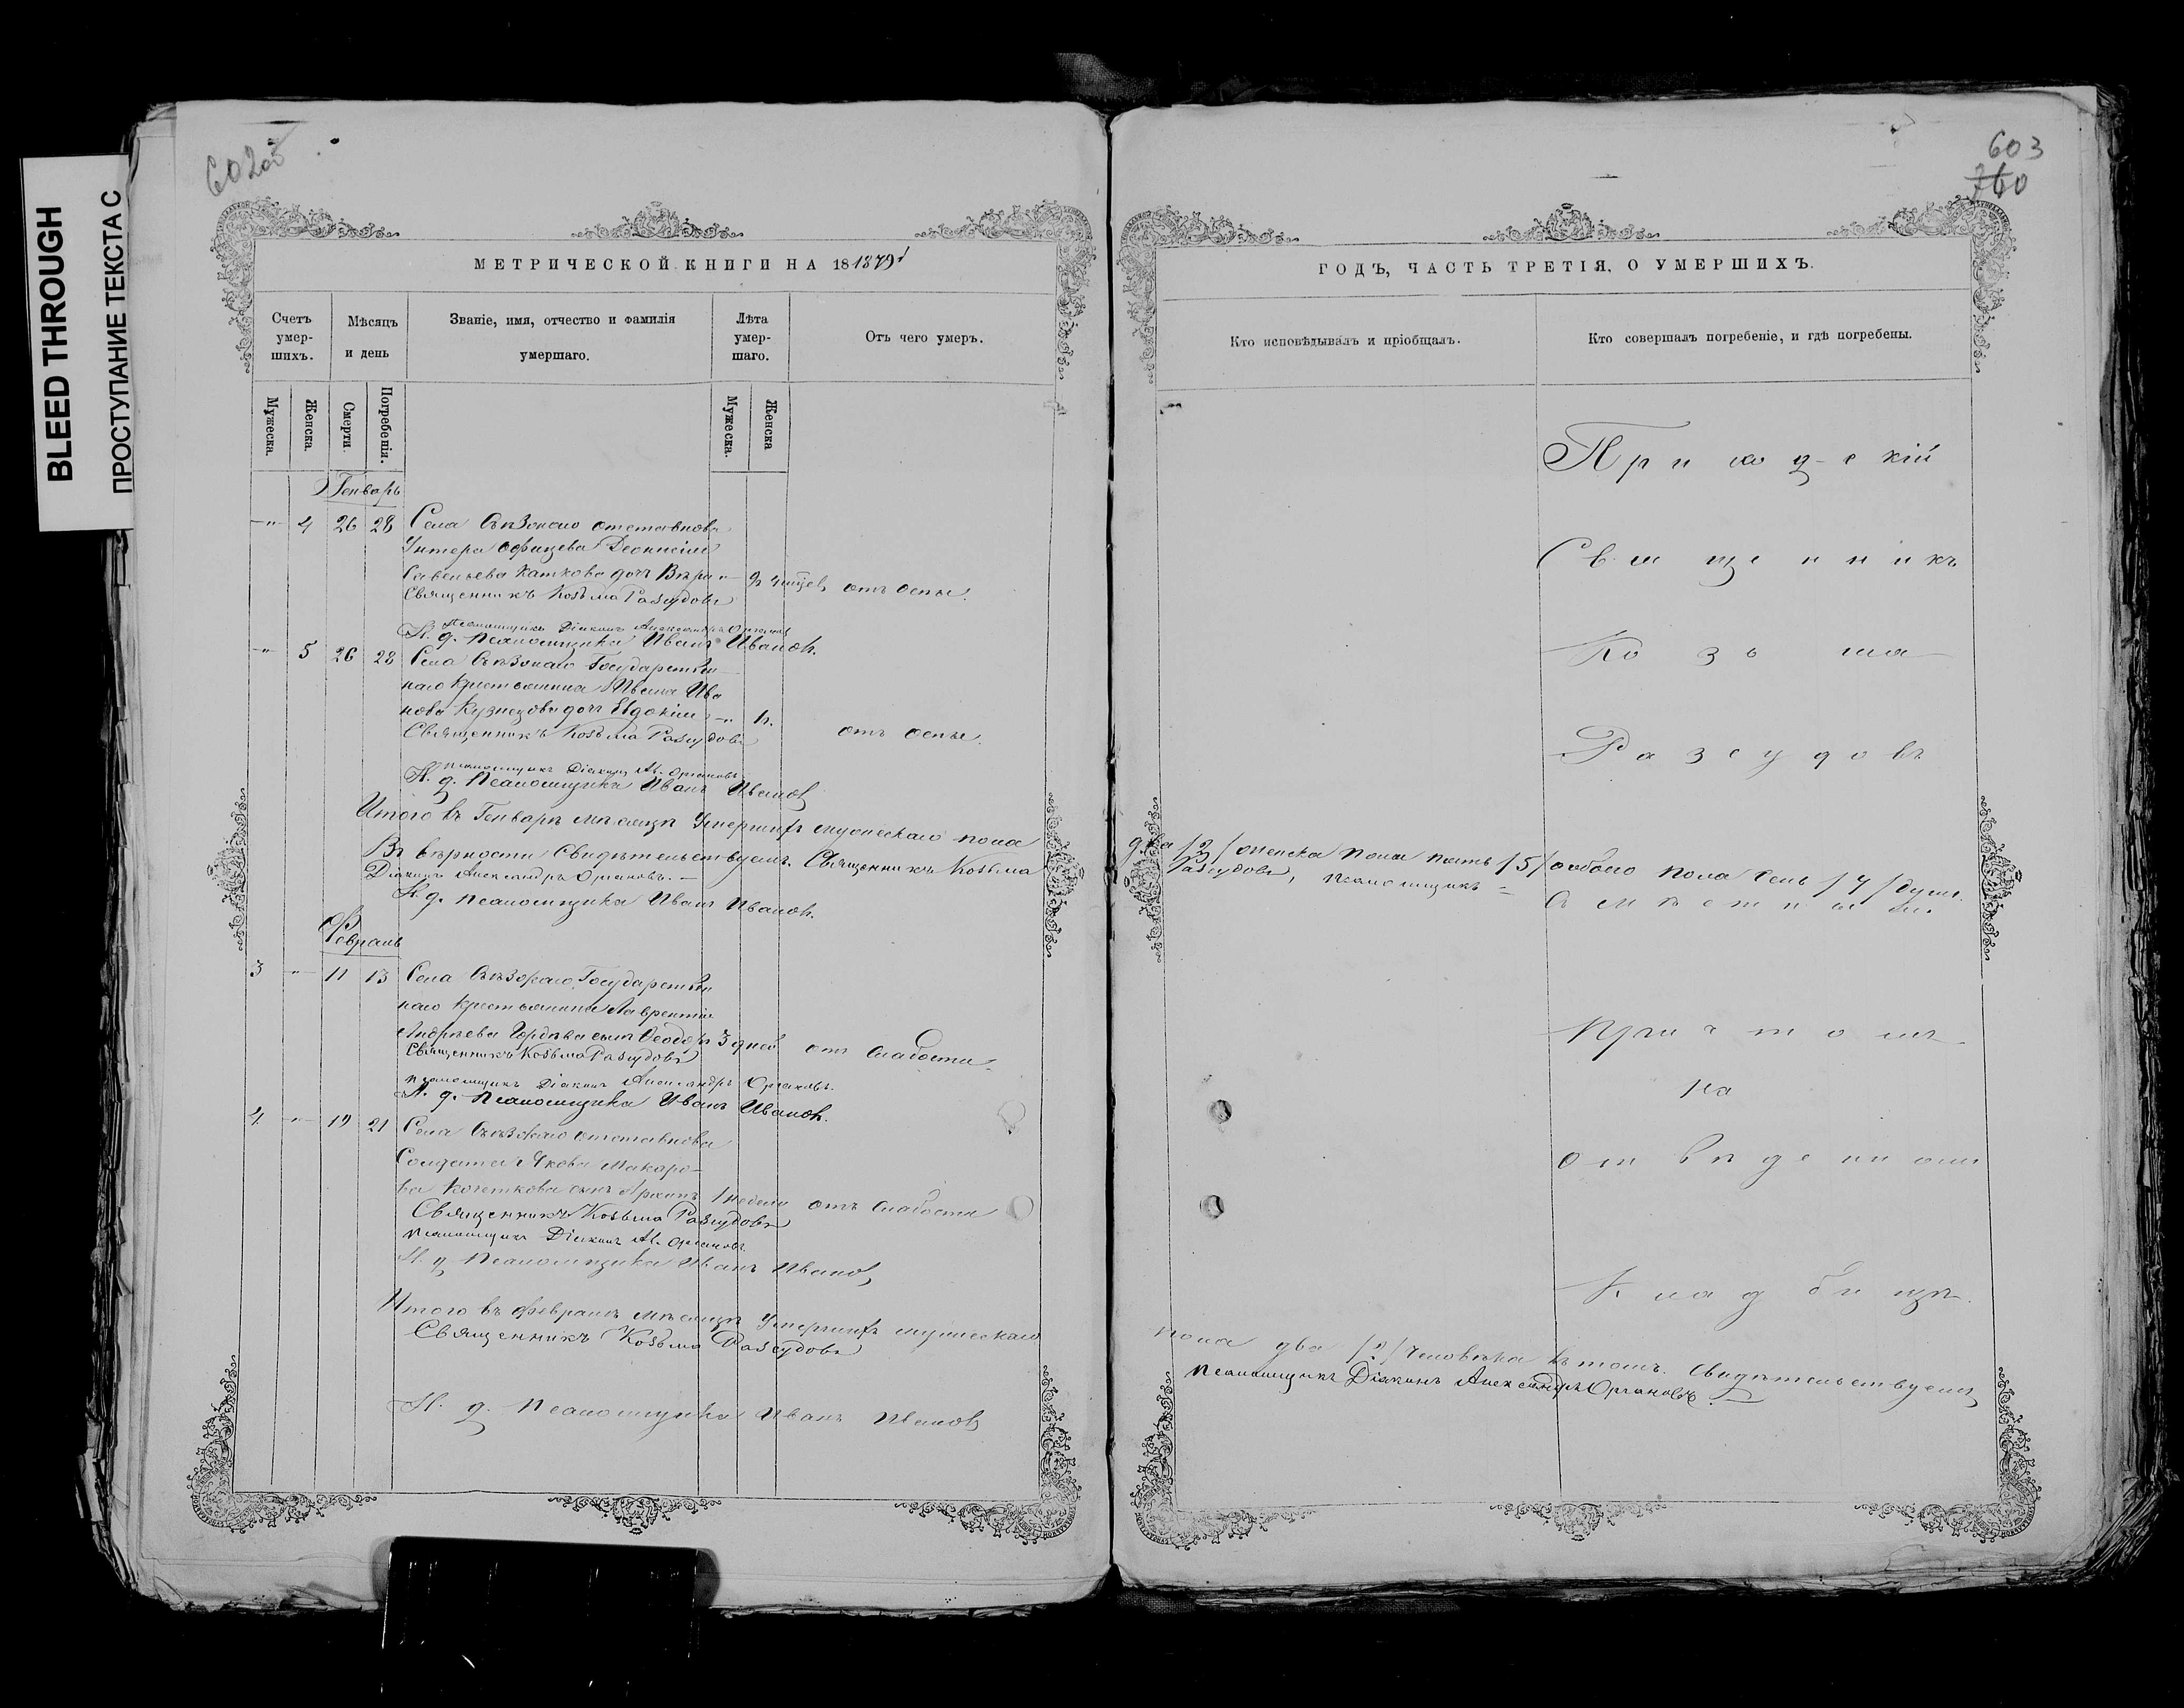 BLEED THROUGH
ПРОСТУПАНИЕ ТЕКСТА С
602об
МЕТРИЧЕСКОЙ КНИГИ НА 181879
Счетъ умер-шихъ.
Мѣсяцъ и день
Званіе, имя, отчество и фамилія умершаго.
Лѣта умер-шаго.
Отъ чего умеръ.
Мужеска.
Женска.
Смерти.
Погребенія.
Мужеска.
Женска
Генварь
4 26 28 Села Съѣзжаго отставнова
Унтера офицера Деонисія
Савельева Каткова дочь Вѣра 2 отъ оспы.
Священникъ Козьма Разсудовъ
Псаломщикъ Діаконъ Александръ Органовъ
И. д. Псаломщика Иванъ Ивановъ.
5 26 28 Села Съѣзжаго Государствен
наго крестьянина Ивана Ива
нова Кузнецова дочь Евдокія отъ оспы.
Священникъ Козьма Разсудовъ
Псаломщикъ Діаконъ Ал. Органовъ
И. д. Псаломщика Иванъ Ивановъ
Итого въ Генварѣ мѣсяцѣ умершихъ мужескаго пола
Въ вѣрности Свидѣтельствуемъ. Священникъ Козьма
Діаконъ Александръ Органовъ.
И. д. Псаломщика Иванъ Ивановъ.
Февраль
3 11 13 Села Съѣзжаго Государствен
наго крестьянина Лаврентія
Андреева Гордѣева сынъ Феодоръ 3 дней отъ слабости.
Священникъ Козьма Разсудовъ
Псаломщикъ Діаконъ Александръ Органовъ.
И. д. Псаломщика Иванъ Ивановъ.
4 19 21 Села Съѣзжаго отставнова
Солдата Якова Макаро-
ва Кочеткова сынъ Архипъ 1 недели отъ слабости
Священникъ Козьма Разсудовъ
Псаломщикъ Діаконъ Ал. Органовъ.
И. д. Псаломщика Иванъ Ивановъ
Итого въ Февралѣ мѣсяцѣ умершихъ мужескаго
Священникъ Козьма Разсудовъ
И. д. Псаломщика Иванъ Ивановъ
603
760
ГОДЪ, ЧАСТЬ ТРЕТІЯ, О УМЕРШИХЪ.
Кто исповѣдывалъ и пріобщалъ.
Кто совершалъ погребеніе, и гдѣ погребены.
Приходскій
Священникъ
Козьма
Разсудовъ
два /2/ женска пола пять /5/ обоего пола семь /7/ душъ.
Разсудовъ, псаломщикъ
Съ мѣстнымъ
Причтомъ
на
отведенномъ
Кладбищѣ.
пола два /2/ человѣка въ томъ. Свидѣтельствуемъ
Псаломщикъ Діаконъ Александръ Органовъ.